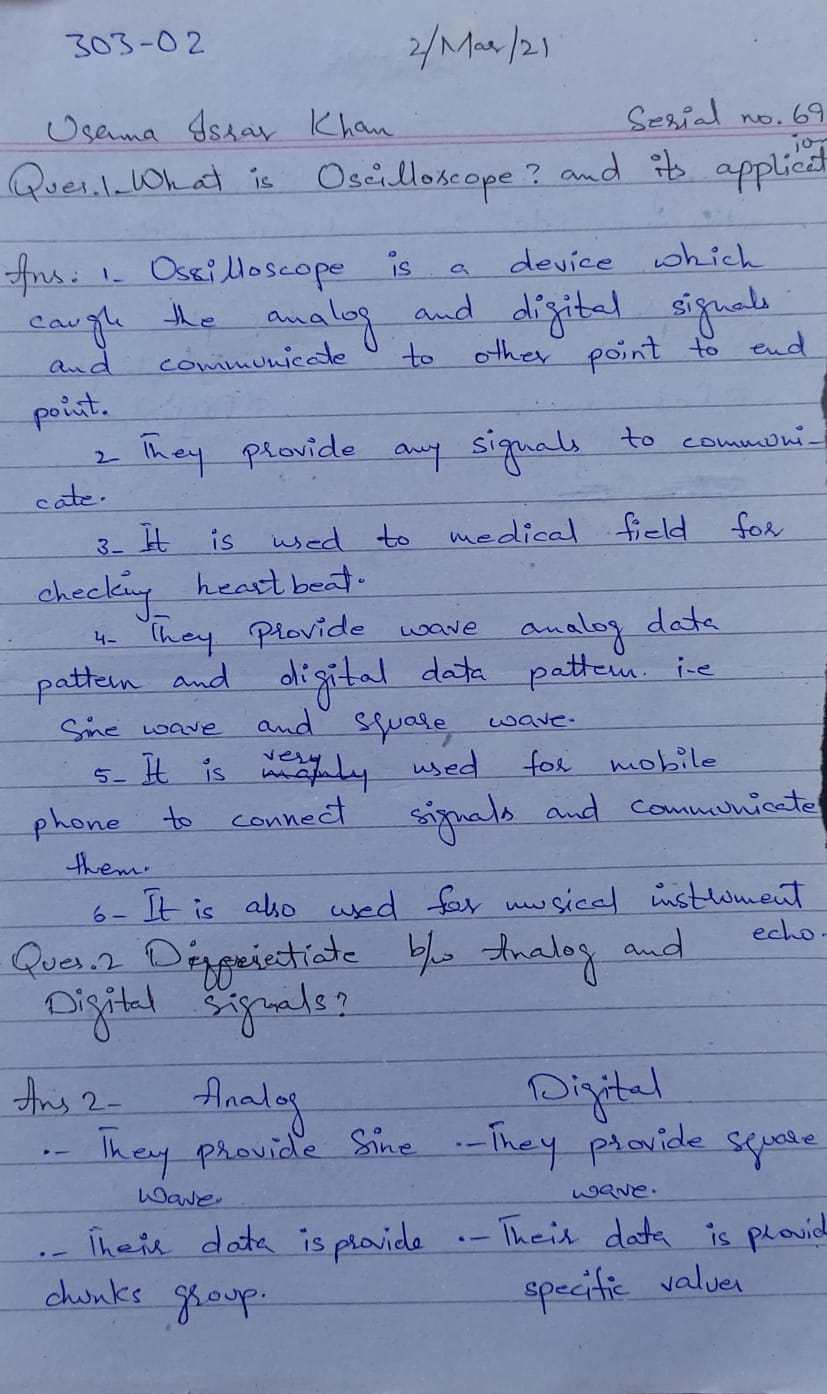 303-02 2/Mar/21
Usama Issar Khan Serial no. 69
Ques.1. What is Oscilloscope? and its application
Ans: 1- Oscilloscope is a device which
caugh the analog and digital signals
and communicate to other point to end
point.
2 They provide any signals to communi-
cate.
3- It is used to medical field for
checking heart beat.
4- They provide wave analog data
pattern and digital data pattern. i-e
Sine wave and square wave.
5- It is very used for mobile
phone to connect signals and communicate
them.
6- It is also used for musical instrument
echo.
Ques.2 Differientiate b/w Analog and
Digital signals?
Ans 2- Analog Digital
.- They provide Sine .- They provide square
wave. wave.
.- Their data is provide .- Their data is provid
chunks group. specific values